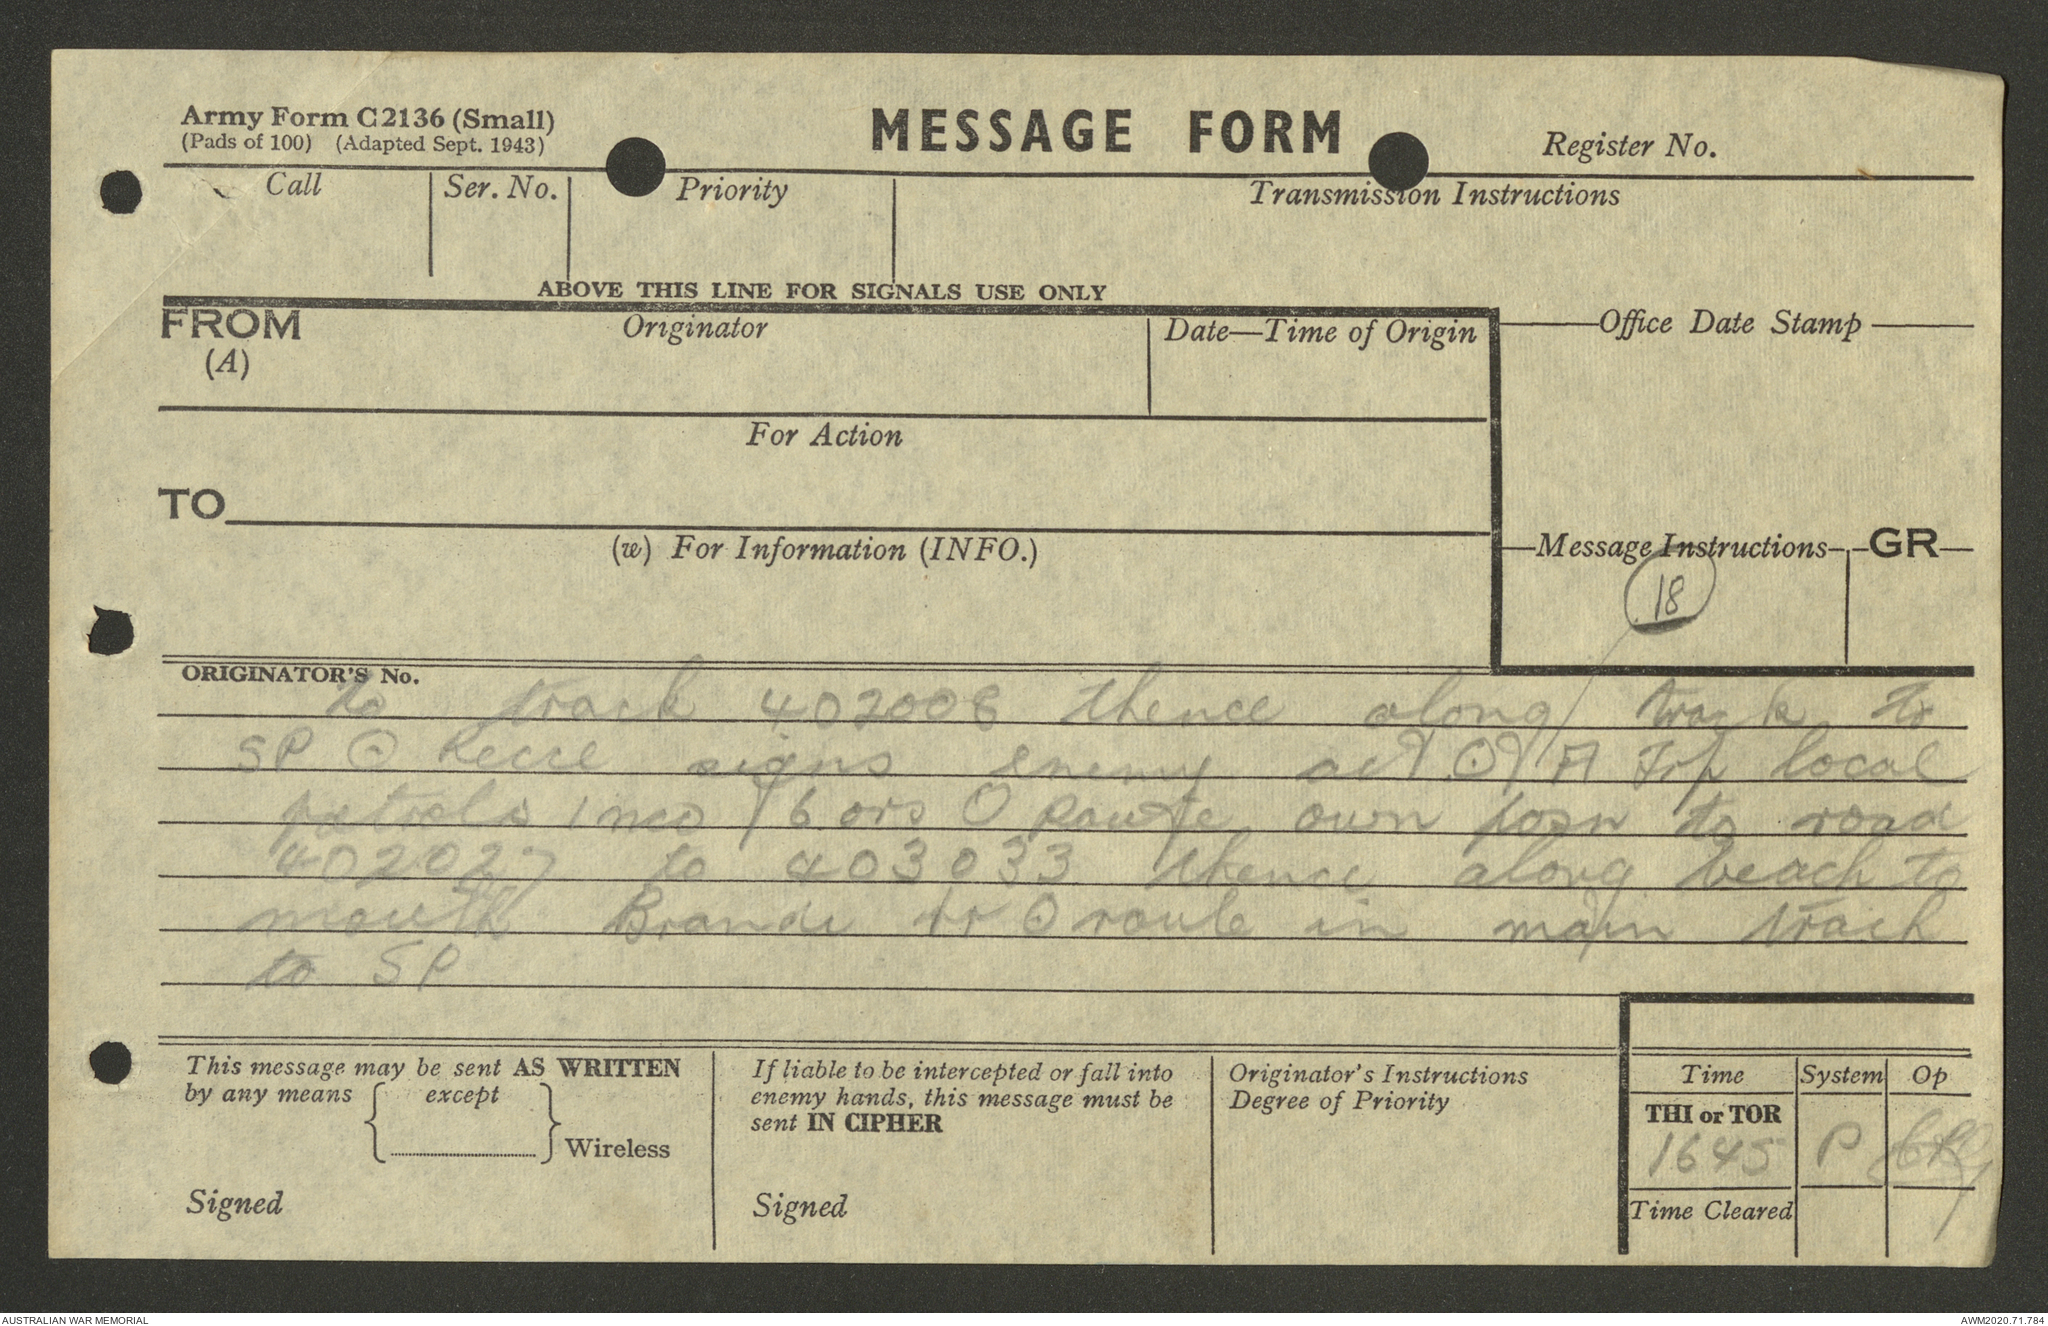 Army Form C2136 (Small)
(Pads of 100) (Adapted Sept. 1943)
MESSAGE FORM
Register No.
Call
Ser. No.
Priority
Transmission Instructions
ABOVE THIS LINE FOR SIGNALS USE ONLY
FROM
(A)
Originator
Date—Time of Origin
Office Date Stamp
For Action
TO
(w) For Information (INFO.)
Message Instructions
GR
18
ORIGINATOR'S No.
to track 402008 thence along track to
SP ⊙ Recce signs enemy act ⊙ A local
patrols 1 nco 6 ors ⊙ Route own posn to road
402027 to 403033 thence along beach to
mouth Brandi ⊙ route in main track
to SP
This message may be sent AS WRITTEN
by any means except
Wireless
Signed
If liable to be intercepted or fall into
enemy hands, this message must be
sent IN CIPHER
Signed
Originator's Instructions
Degree of Priority
Time System Op
THI or TOR
1645 P
Time Cleared
AUSTRALIAN WAR MEMORIAL
AWM2020.71.784